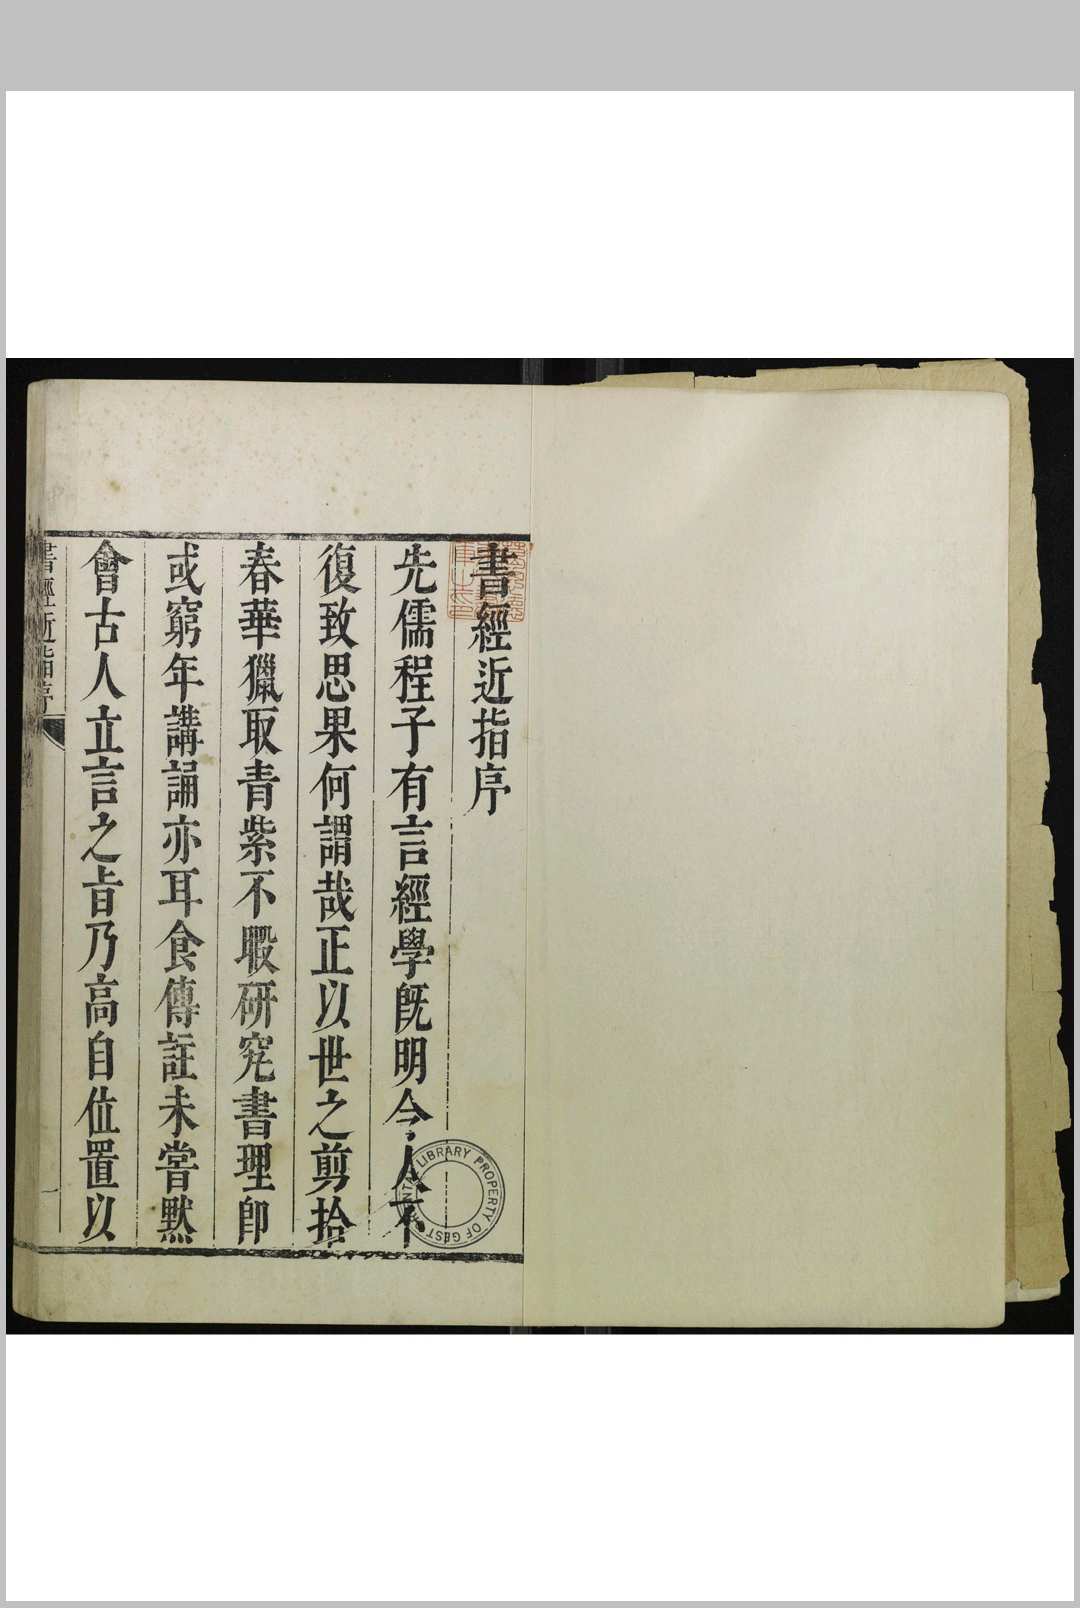 書經近指序
先儒程子有言經學旣明今人不
復致思果何謂哉正以世之剪拾
春華獵取青紫不暇研究書理卽
或窮年講誦亦耳食傳註未嘗默
會古人立言之旨乃高自位置以
書經近指序
一
LIBRARY PROPERTY OF GEST